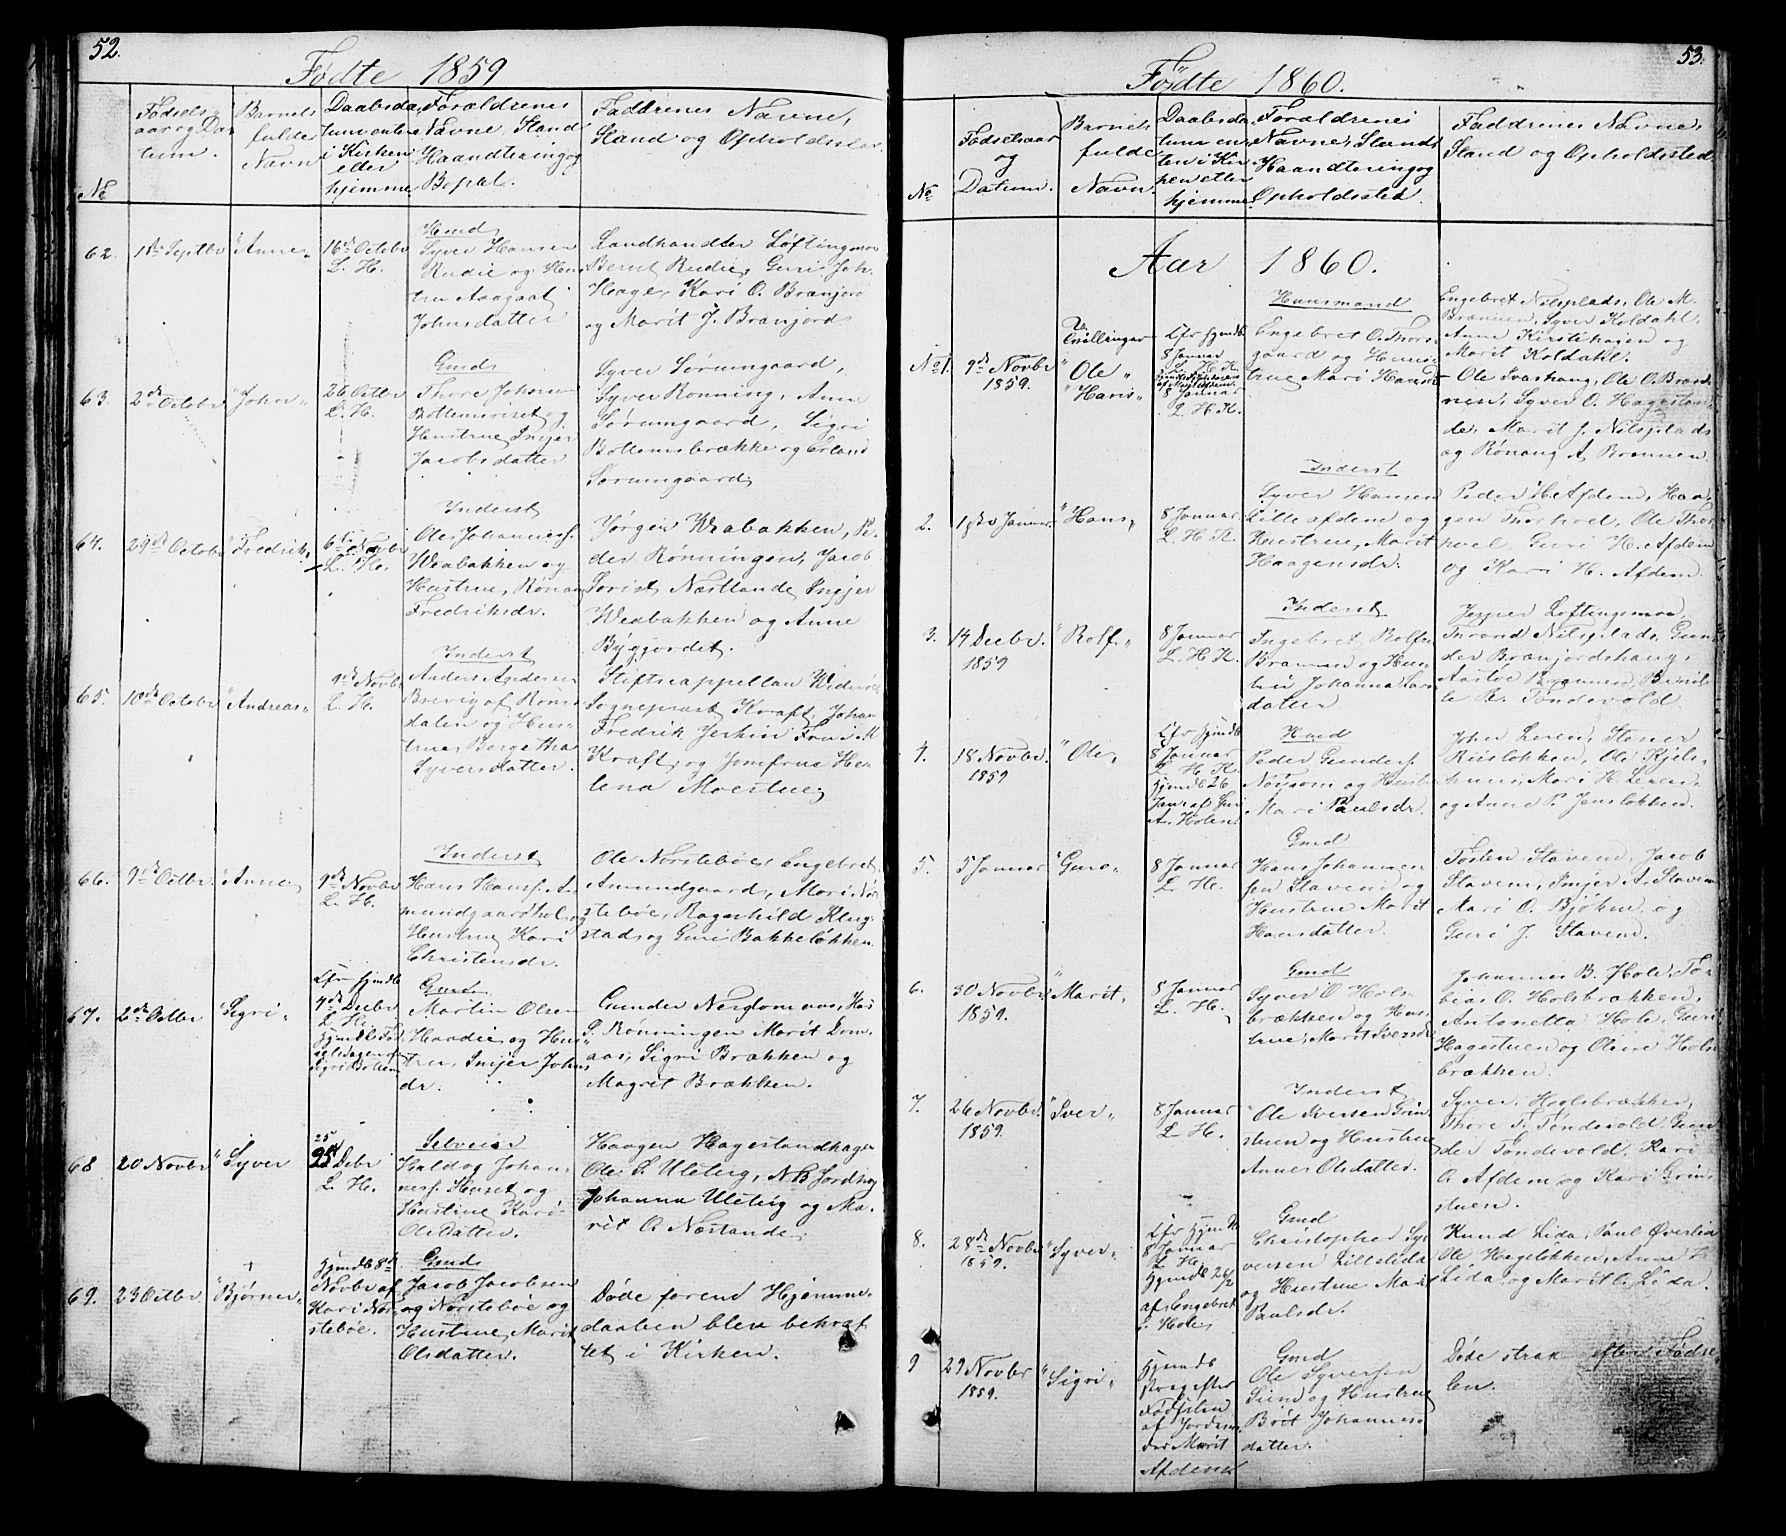 52.
Fødte 1859
No
Fødsels
aar og Da
tum.
Barnets
fulde
Navn
Daabsda,
tum enten
i Kirken
eller
hjemme.
Forældrenes
Navne, Stand
Haandtering og
Bopæl.
Faddrenes Navne,
Stand og Opholdssted
62.
1ste Septbr
Anne
16de Octobr
L. H.
Gmd
Syver Hansen
Rudie og Hus
tru Aagaat
Johnsdatter
Landhandler Løftingsmo
Bernt Rudie, Guri Joh.
Hage, Kari O. Brænjord
og Marit J. Brænjord
63.
2de Octobr
Johan
26 Octbr
L. H.
Gmd
Thore Johnsen
Bottemsviset og
Hustrue Injer
Jacobsdatter
Syver Sørumgaard,
Syver Rønning, Anne
Sørumgaard, Sigri
Bottemsbrække og Erland
Sørumgaard
64.
29de Octobr
Fredrik
6te Novbr
L. H.
Inderst
Ole Johannesf.
Weabakken og
Hustrue, Rønau
Fredriksdr.
Jørgen Weabakken, Pe-
der Rønningen, Jacob
Næstlande Injer
Weabakken og Anne
Byggjordet.
65.
10de Octobr
Andreas
1ste Novbr
L. H.
Inderst
Anders Andersen
Brevig af Roms
dalen og Hus-
true Bergetha
Syversdatter.
Stiftscappellan Widerøe
Sognepræst Kraft, Johan
Fredrik Jerkin Frue M
Kraft, og Jomfrue He-
lena Moestue
66.
9de Octbr.
Anne
9de Novbr
L. H.
Inderst
Hans Hansf. A-
mundgaardhol, og
Hustrue Kari
Christensdr.
Ole Norstebøe, Engebret
Amundgaard, Mari Nor
stebøe, Ragnhild Klug
stad og Guri Bakkeløkken.
67.
2de Octbr
Sigri
Efr hjmdb
4de Decbr
L. H.
Hjmdb Fød
selsdagen af
Sigri Bottem
Gmd
Martin Olsen
Haadie og Hus
tru, Injer Johns
dr.
Gunder Nerdomaas, Hans
P. Rønningen Marit Dom-
aas, Sigri Brækken og
Magrit Brækken.
68
20 Novbr
Syver
25
25de Debr
L. H.
Selveier
Haldog Johan-
nesf. Huset og
Hustrue Kari
Olsdatter.
Haagen Hagestandhagen
Ole P. Uleteig, N B Jordhøy
Johanna Uleteig og Ma-
rit O. Næstande.
69.
23 Octbr.
Bjørner
Hjmdb 8de
Novbr af
Kari Nor
stebøe.
Gmd
Jacob Jacobsen
og Norstebøe og
Hustrue, Marit
Olsdatter.
Døde førend Hjemme-
daaben blev bekræf
tet i Kirken.
53.
Fødte 1860.
No
Fødselsaar
og
Datum.
Barnets
fulde
Navn.
Daabsda
tum en-
ten i Kir
ken eller
hjemme.
Forældrenes
Navne, Stand
Haandtering og
Opholdssted.
Faddrenes Navne,
Stand og Opholdssted,
Aar 1860.
No 1.
9de Novbr
1859.
Tvillinger
Ole
Hans
Efr hjmdb
8 Januar
L. H. K.
8 Januar
L. H. K.
Huusmand
Engebret O. Thors-
gaard og Hus-
true Mari Hansd
Engebret Nilsplads, Ole M.
Brænnen, Syver Koldahl,
Anne Kirstihagen og
Marit Koldahl.
Ole Ivashaug, Ole O. Bræn-
nen, Syver O. Hagestan-
de, Marit J. Nilsplads
og Rønaug A Brennen
2.
1ste Januar
Hans
8 Januar
L. H. K.
Inderst
Syver Hansen
Lilleafdem og
Hustrue, Marit
Haagensdr.
Peder H. Afdem, Haa-
gen Thorhoel, Ole Thor-
hoel, Guri H. Afdem
og Kari H. Afdem.
3.
14 Decbr.
1859
Rolf
8 Januar
L. H K.
Inderst
Ingebret Rolfsen
Brænnen og Hus-
tru Johanna Lars
datter
Jesper Loftingsmoe,
Trond Nilsplads, Gun
der Brænjordshaug,
Aaste Brænnen, Brude
le R. Tøndevold
4.
18 Novbr.
1859
Ole
Efr hjmdb
8 Januar
L. H. K.
Hjmdb 26
A. Holen
Hmd
Peder Gundersf.
og Hustr
Mari Paulsdr.
John Leren, Stener
Rusløkken, Ole Kjels-
huus, Mari H. Leren
og Anne P. Jensløkken.
5.
5 Januar
Guro
8 Januar
L. H.
Gmd
Hans Johannes-
sen Stavem og
Hustrue Marit
Hansdatter.
Tosten Stavem, Jacob
Stavem, Injer A. Stavem
Mari O. Bjøkne, og
Guri J. Stavem.
6.
30 Novbr
1859.
Marit
8 Januar
L. H.
Gmd
Syver O Hols-
brækken og Hus
true, Marit Iversdr
Johannes B. Hole, To-
bias O. Holsbrækken,
Antonetta Hole, Guri
Hagestuen og Oline Hols
brækken.
7.
26 Novbr.
1859.
Iver
8 Januar
L. H.
Inderst
Ole Iversen Grin
stuen og Hustrue
Anne Olsdatter.
Syver Holsbrækken,
Thore T. Tøndevold, Gun
der Tøndevold, Kari
O. Afdem og Kari Grin-
stuen.
8.
28de Novbr
1859.
Syver
Efr hjmdb
8 Januar
L. H.
Hjmdb 26/2
af Engebret
S. Hole
Gmd
Christopher Sy-
versen Lillelida
og Hustrue Mari
Paulsdr.
Knud Lida, Paul Øverlie
Ole Hageløkken, Anne P
Lida, og Marit C. Lida.
9
29 Novbr
1859.
Sigri
Hjemdb
strax efter
Fødselen
af Jordemo
der Marit
Afdem
Gmd
Ole Syversen
Lund og Hustrue
Brit Johannes
datter.
Døde strax efter Fødse-
len.